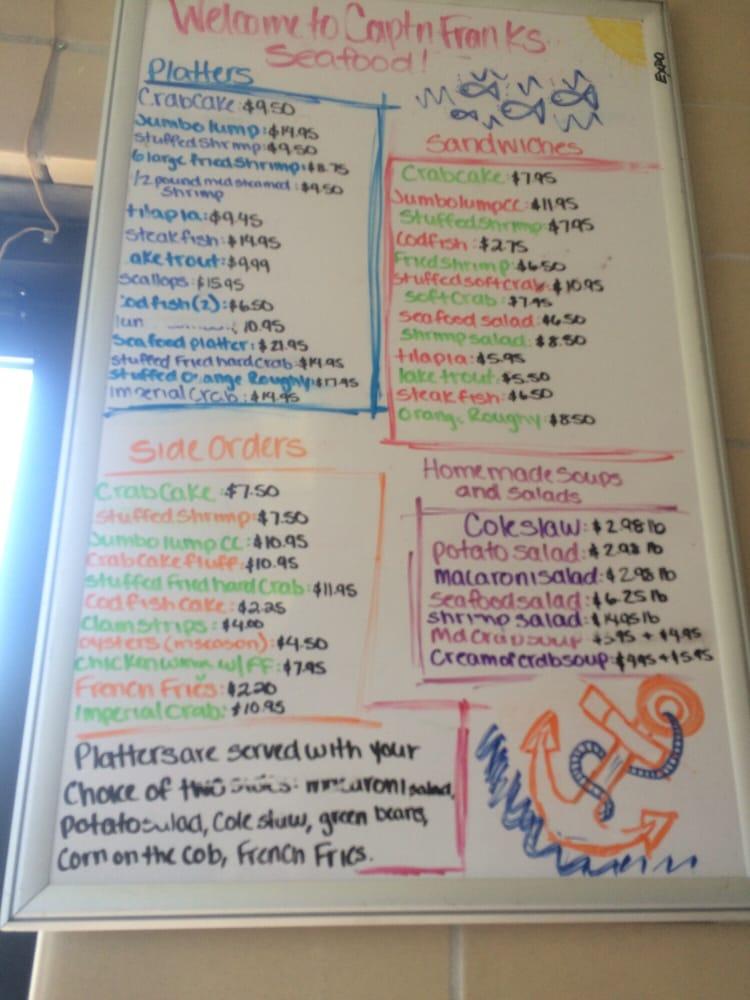 Welcome to Captn Franks
Seafood!
EXPO
Platters
Crabcake: $9.50
Jumbo lump: $14.95
Stuffed Shrimp: $9.50
6 large fried Shrimp: $8.75
1/2 pound med steamed: $9.50
Shrimp
tilapia: $9.45
Steakfish: $14.95
ake trout: $9.99
Scallops: $15.95
Codfish (2): $6.50
10.95
Seafood Platter: $21.95
Stuffed Fried hard Crab: $14.95
Stuffed Orange Roughy: $17.95
Imperial Crab: $14.95
Sandwiches
Crabcake: $7.95
Jumbo lump CC: $11.95
Stuffed Shrimp: $7.95
Codfish: $2.75
Fried Shrimp: $6.50
Stuffed soft crab: $10.95
Soft Crab: $7.95
Seafood salad: $6.50
Shrimp salad: $8.50
tilapia: $5.95
lake trout: $5.50
Steakfish: $6.50
Orange Roughy: $8.50
Side Orders
Crab Cake: $7.50
Stuffed Shrimp: $7.50
Jumbo lump CC: $10.95
Crab Cake Fluff: $10.95
Stuffed Fried hard Crab: $11.95
Cod Fish Cake: $2.25
Clam Strips: $4.00
Oysters (in season): $4.50
w/ FF: $7.95
French Fries: $2.20
Imperial Crab: $10.95
Homemade Soups
and Salads
Coleslaw: $2.98 lb
Potato salad: $2.98 lb
macaroni salad: $2.98 lb
Seafood salad: $6.25 lb
Shrimp Salad: $14.95 lb
Md Crab soup + $4.95
Cream of crab soup: $4.95 + $5.95
Platters are served with your
Choice of two sides: macaroni salad,
Potato salad, Cole slaw, green beans,
Corn on the cob, French Fries.